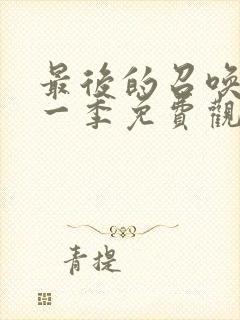 最後的召喚
一季免費觀
青提